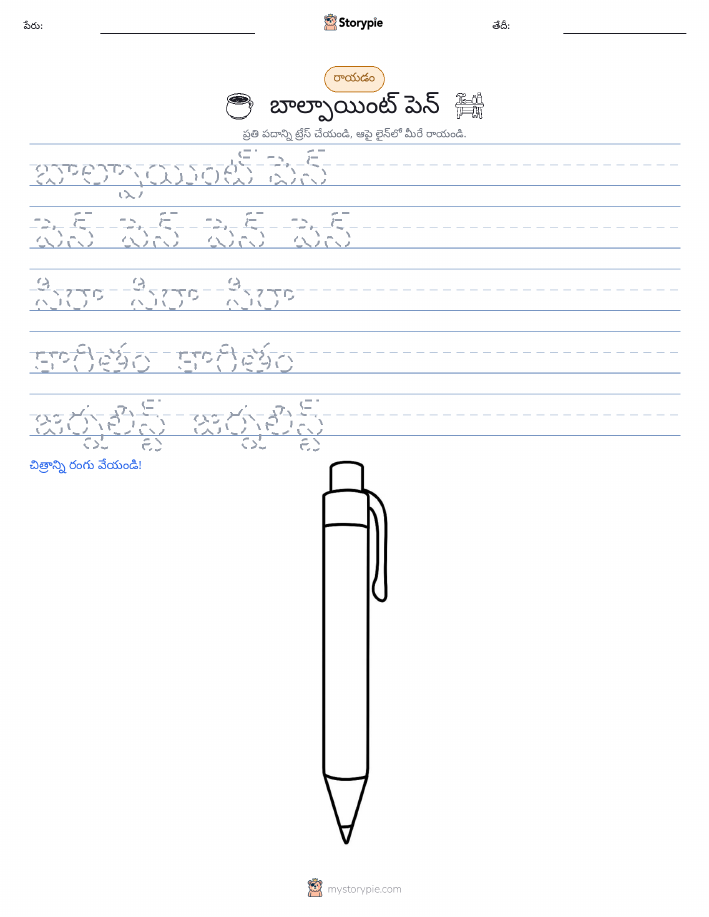 పేరు:
Storypie
తేదీ:
రాయడం
బాల్పాయింట్ పెన్
ప్రతి పదాన్ని ట్రేస్ చేయండి, ఆపై లైన్‌లో మీరే రాయండి.
బాల్పాయింట్ పెన్
పెన్ పెన్ పెన్ పెన్
సిరా సిరా సిరా
కాగితం కాగితం
జర్నలిస్ట్ జర్నలిస్ట్
చిత్రాన్ని రంగు వేయండి!
mystorypie.com